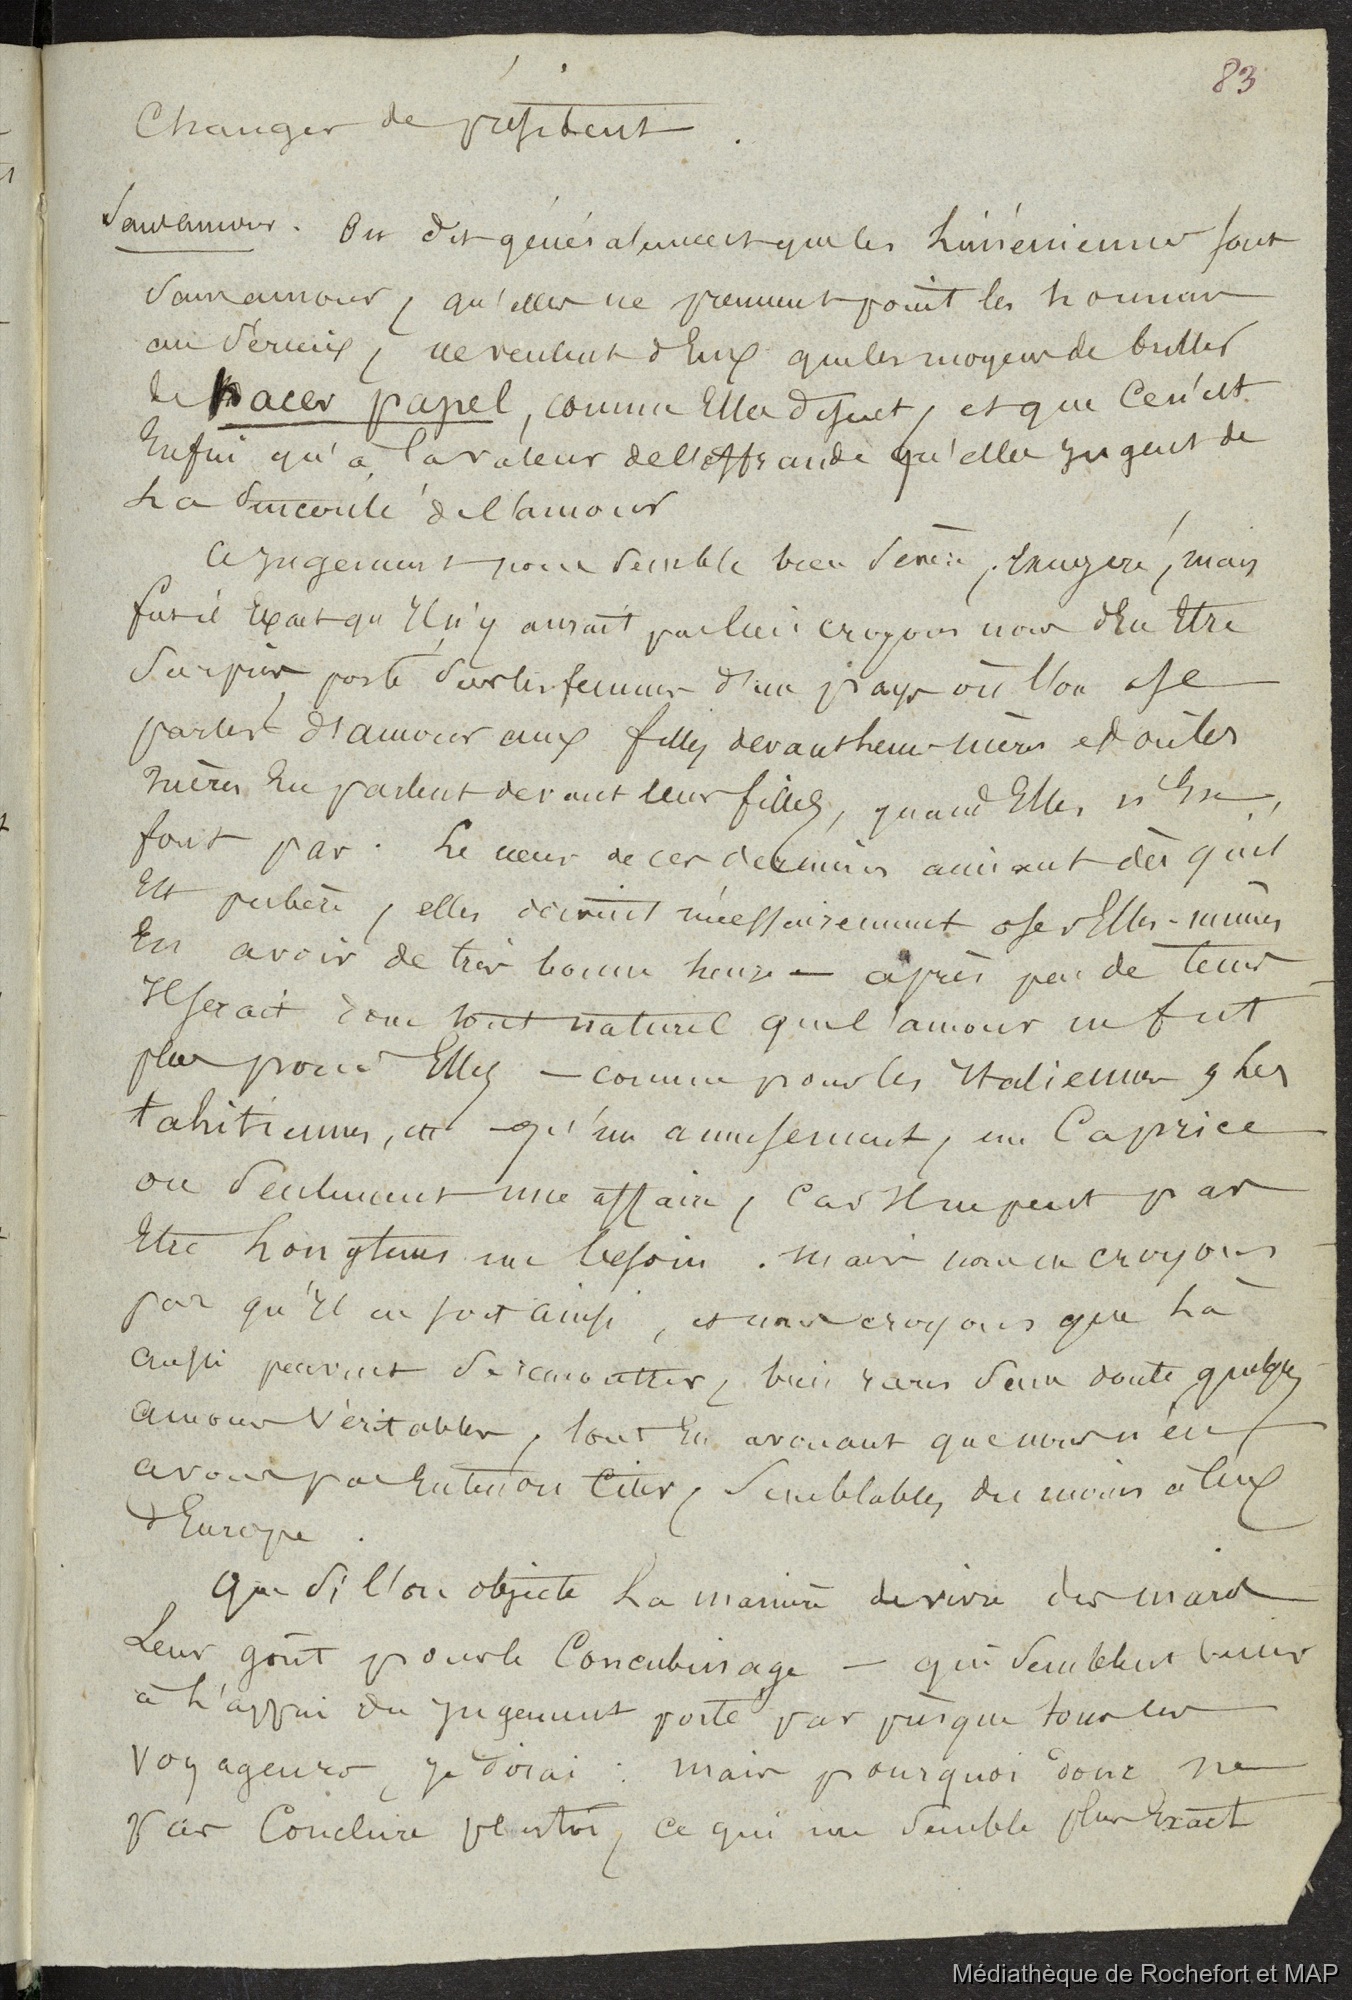 83
Changer de président.
Sans amour. On dit généralement que les Liméniennes sont
sans amour, qu'elles ne prennent point les hommes
au sérieux, ne veulent d'Eux que les moyens de briller
de hacer papel, comme Elles disent, et que ce n'est
Enfin qu'à la valeur de l'offrande qu'elles jugent de
La sincérité de l'amour
Ce jugement nous semble bien sévère, Exagéré, mais
fut-il Exact qu'Il n'y aurait pas lieu croyons nous d'En Etre
surpris porté sur les femmes d'un pays où l'on ose
parler d'amour aux filles devant leurs mères et où les
mères En parlent devant leurs filles, quand Elles n'En
font pas. Le cœur de ces dernières aimant dès qu'il
Est pubère, elles doivent nécessairement oser Elles-mêmes
En avoir de très bonne heure — après peu de tems
Il serait donc tout naturel que l'amour ne fut
plus pour Elles — comme pour les Italiennes, Les
tahitiennes, etc — qu'un amusement, un Caprice
ou seulement une affaire, car Il ne peut pas
Etre Longtems un besoin. mais nous ne croyons
pas qu'Il en soit ainsi, et nous croyons que Là
aussi peuvent se rencontrer, bien rares sans doute quelques
amours véritables, tout En avouant que nous n'en
avons pas Entendu Citer, semblables du moins à Ceux
d'Europe.
Que si l'on objecte La manière de vivre des maris
Leur goût pour le Concubinage — qui semblent venir
à L'appui du jugement porté par presque tous les
voyageurs, je dirai : mais pourquoi donc ne
pas Conclure plutôt, ce qui me semble plus Exact
Médiathèque de Rochefort et MAP